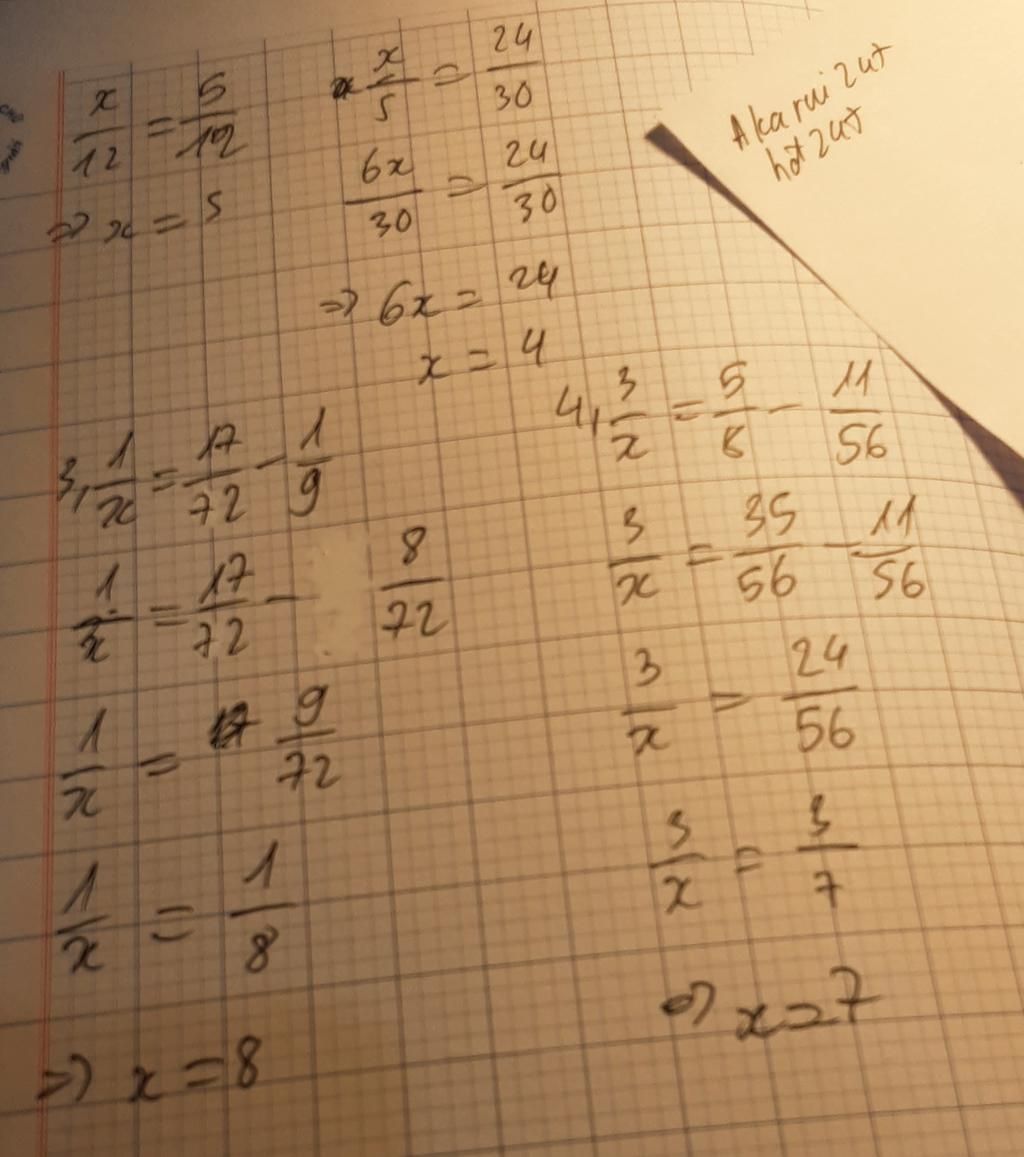 x/12 = 5/12
⇒ x = 5
x/5 = 24/30
6x/30 = 24/30
⇒ 6x = 24
x = 4
3, 1/x = 17/72 - 1/9
1/x = 17/72 - 8/72
1/x = 9/72
1/x = 1/8
⇒ x = 8
4, 3/x = 5/8 - 11/56
3/x = 35/56 - 11/56
3/x = 24/56
3/x = 3/7
⇒ x = 7